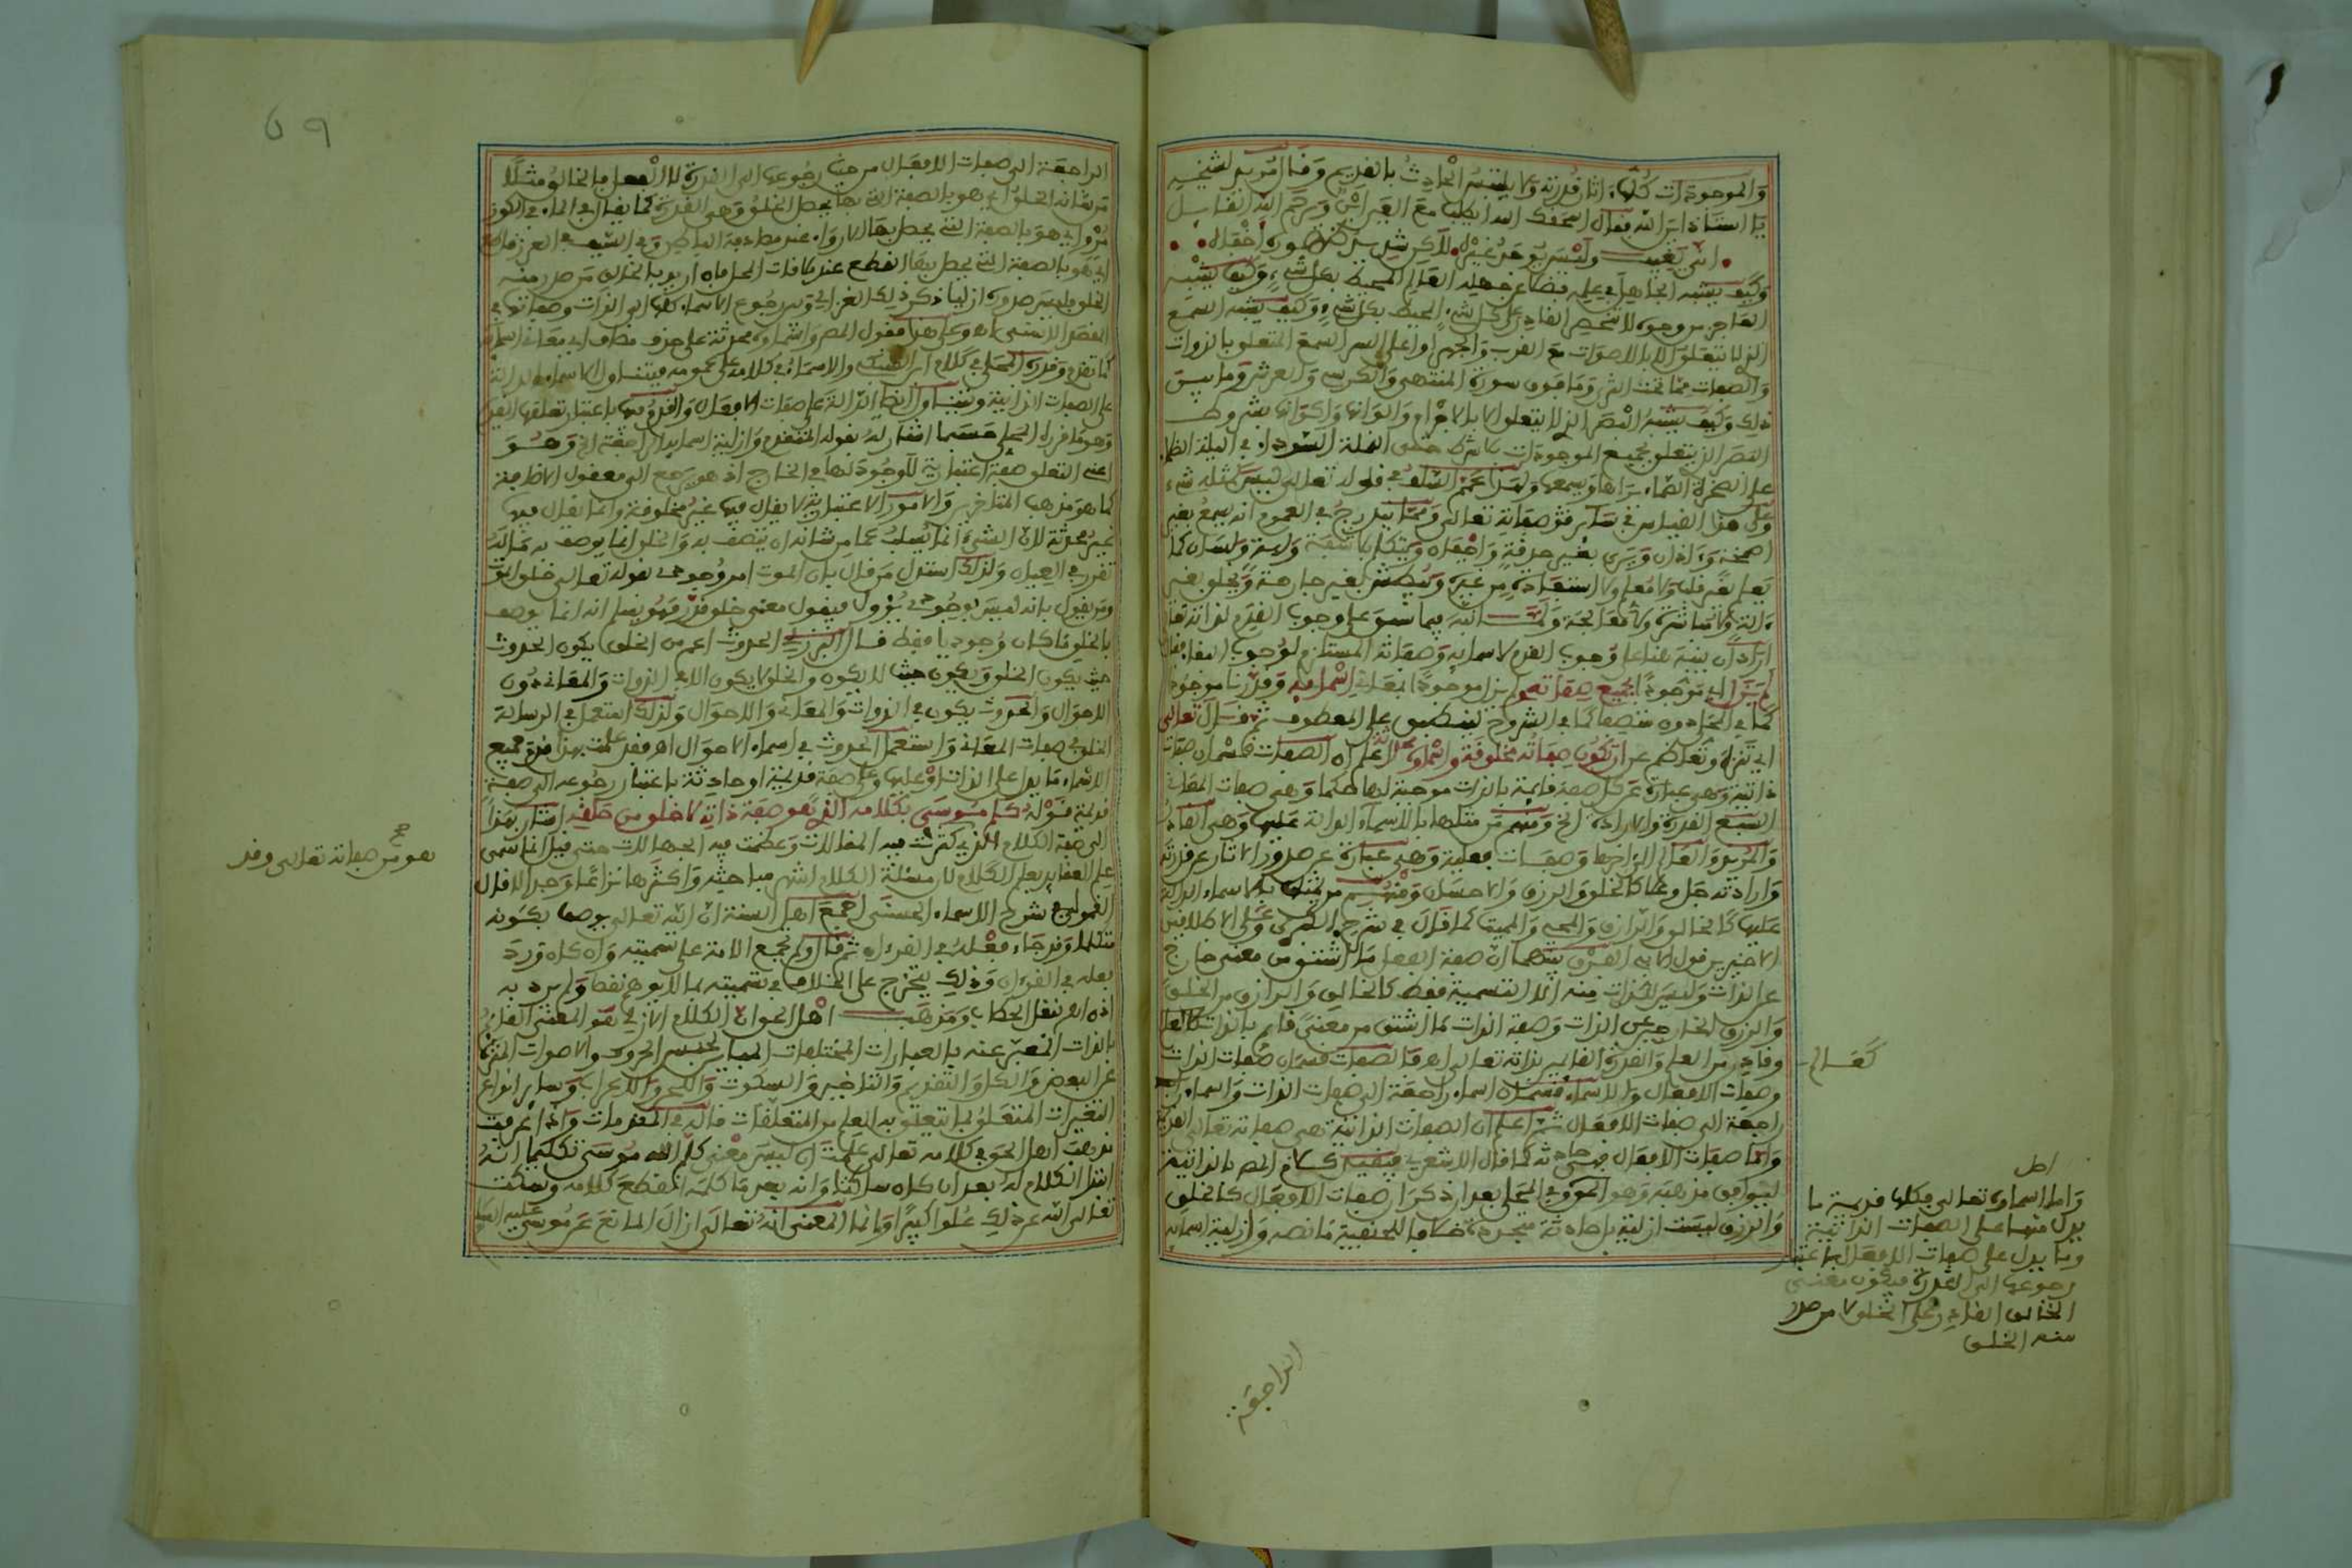 والموجودات كلها اثار قدرته ولا يشبه الحادث بالقديم وقال مريد لشيخه
يا استاذ اين الله فقال اسحقك الله ايطلب مع العين اين ورحم الله القائل
وكيف يشبه الجاهل في علمه فضلا عن جهله العالم المحيط بكل شيء وكيف يشبه
العاجز من وجوه لا تنحصر القادر على كل شيء المحيط بكل شيء وكيف يشبه السمع
الذي لا يتعلق الا بالاصوات مع القرب والجهر او اعلى السر السمع المتعلق بالذوات
والصفات مما تحت الثرى وما فوق سدرة المنتهى والكرسي والعرش وما بين
ذلك وكيف يشبه البصر الذي لا يتعلق الا بالاجرام والوانها واكوانها بشروط
البصر الذي يتعلق بجميع الموجودات بلا شرط حتى النملة السوداء في الليلة الظلماء
على الصخرة الصماء يراها ويسمعها ولهذا عمم السلف في قوله تعالى ليس كمثله شيء
وعلى هذا القياس في سائر صفاته تعالى ومما يندرج في العموم انه يسمع بغير
اصمخة وآذان ويرى بغير حدقة واجفان ويتكلم بلا شفة ولسان كما
يعلم بغير قلب ولا استفادة من غيره ويبطش بغير جارحة ويخلق بغير
آلة ولا مباشرة ولا معالجة ولما نبه فيما سبق على وجوب القدم لذاته تعالى
اراد ان ينبه هنا على وجوب القدم لاسمائه وصفاته المستلزم لوجوب البقاء فقال
لم يزل اي موجودا بجميع صفاته لم يزل موجودا بمعاني اسمائه وقدرنا موجودا
اي تنزه وتعاظم عن ان تكون صفاته مخلوقة واسماؤه محدثة اعلم ان الصفات قسمان صفات
ذاتية وهي عبارة عن كل صفة قائمة بالذات موجبة لها حكما وهي صفات المعاني
السبع القدرة والارادة الخ ومنهم من مثلها بالاسماء الدالة عليها وهي القادر
والمريد والعالم الى اخرها وصفات فعلية وهي عبارة عن صدور الاثار عن قدرته
وارادته جل وعلا كالخلق والرزق والاحسان ومنهم من مثلها بالاسماء الدالة
عليها كالخالق والرازق والمحيي والمميت كما قال في شرح الكبرى وعلى الاطلاقين
عن الذات وليس للذات منه الا التسمية فقط كالخالق والرازق من الخلق
والرزق الخارجين عن الذات وصفة الذات ما اشتق من معنى قائم بالذات كالعالم
وقادر من العلم والقدرة القائمين بذاته تعالى اه فالصفات قسمان صفات الذات
وصفات الافعال والاسماء قسمان اسماء راجعة الى صفات الذات واسماء
راجعة الى صفات الافعال ثم اعلم ان الصفات الذاتية هي صفاته تعالى القديمة
واما صفات الافعال فهي حادثة كما قال الاشعري فيقيد كلام المص بالذاتية
ليوافق مذهبه وهو الحق وفي المحلي بعد ان ذكر ان صفات الافعال كالخلق
والرزق ليست ازلية بل حادثة متجددة خلافا للحنفية ما نصه وازلية اسمائه
كفال
واما اسماؤه تعالى فكلها قديمة ما
يدل منها على الصفات الذاتية
وما يدل على صفات الافعال باعتبار
رجوعها الى القدرة فيكون معنى
الخالق القادر على الخلق لا من صدر
منه الخلق
الراجعة
الراجعة الى صفات الافعال من حيث رجوعها الى القدرة لا الفعل فالخالق مثلا
من شانه الخلق اي هو بالصفة التي بها يحصل الخلق وهي القدرة كما يقال في الماء في الكوز
مروي اي هو بالصفة التي يحصل بها الارواء عند مصادفة الباطن وفي السيف في الغمد قاطع
اي هو بالصفة التي يحصل بها القطع عند ملاقات المحل فان اريد بالخالق من صدر منه
الخلق فليس صدوره ازليا ذكر ذلك الغزالي وبين رجوع الاسماء كلها الى الذات وصفاتها في
المقصد الاسنى اه وعلى هذا فقول المص واسماؤه محدثة على حذف مضاف اي معاني اسمائه
على الصفات الذاتية ويتناول ايضا الدالة على صفات الافعال والقدرة باعتبار تعلقها
اعني التعلق صفة اعتبارية لا وجود لها في الخارج اذ هو يرجع الى معقول الاضافة
كما هو مذهب المتاخرين والامور الاعتبارية لا يقال فيها غير مخلوقة وانما يقال فيها
غير محدثة لان الشيء انما يسلب عما من شانه ان يتصف به والخلق انما يوصف به ماله
تقرر في العيان ولذلك استدل من قال بان الموت امر وجودي بقوله تعالى خلق الموت
ومن يقول بانه ليس بوجودي يؤول فيقول معنى خلق قدر فهو يسلم انه انما يوصف
بالخلق ما كان وجوديا فقط قال الزركشي الحدوث اعم من الخلق يكون الحدوث
حيث يكون الخلق ويكون حيث لا يكون والخلق لا يكون الا في الذوات والمعاني دون
الاحوال والحدوث يكون في الذوات والمعاني والاحوال ولذلك استعمل في الرسالة
الخلق في صفات المعاني واستعمل الحدوث في اسماء الاحوال اه فقد علمت بهذا قدم جميع
الاسماء ما يدل على الذات وعليها وعلى صفة قديمة او حادثة باعتبار رجوعه الى صفة
قديمة قوله كلم موسى بكلامه الذي هو صفة ذاته لا خلق من خلقه اشار بهذا
الى صفة الكلام الذي كثرت فيه المقالات وعظمت فيه الجهالات حتى قيل انما سمي
علم العقائد بعلم الكلام لان مسئلة الكلام اشهر مباحثه واكثرها نزاعا وجدالا قال
القمولي في شرح الاسماء الحسنى اجمع اهل السنة ان الله تعالى يوصف بكونه
متكلما وقد جاء فعله في القرءان ثم قال ولم تجمع الامة على تسميته وان كان ورد
فعله في القرءان وذلك يتخرج على الخلاف في تسميته بما لا يوهم نقصا ولم يرد به
اذن اه نقل الحطاب ومذهب اهل الحق ان الكلام الازلي هو المعنى القائم
بالذات المعبر عنه بالعبارات المختلفات المباين لجنس الحروف والاصوات المنزه
عن البعض والكل والتقديم والتاخير والسكوت واللحن والاعراب وسائر انواع
التغيرات المتعلق بما يتعلق به العلم من المتعلقات قاله في المقدمات واذا عرفت
مذهب اهل الحق في كلامه تعالى علمت ان ليس معنى كلم الله موسى تكليما انه
ابتدا الكلام له بعد ان كان ساكتا وانه بعد ما كلمه انقطع كلامه وسكت
تعالى الله عن ذلك علوا كبيرا وانما المعنى انه تعالى ازال المانع عن موسى عليه السلام
هو من صفاته تعالى وقد